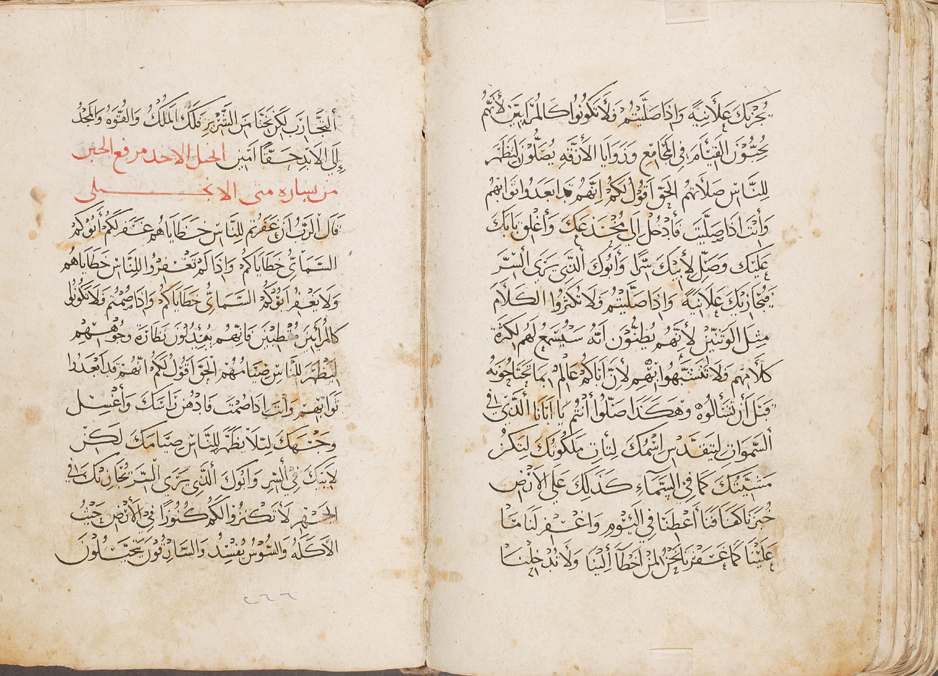 يجزيك علانية واذا صليتم ولا تكونوا كالمرايين لأنهم
يحبون القيام في المجامع وزوايا الازقة يصلون ليظهر
للناس صلاتهم الحق اقول لكم انهم قد ابعدوا ثوابهم
وأنت اذا صليت فادخل الى مخدعك وأغلق بابك
عليك وصل لأبيك سرا وأبوك الذي يرى السر
يجازيك علانية واذا صليتم ولا تكثروا الكلام
مثل الوثنيين لأنهم يظنون أنه سيسمع لهم لكثرة
كلامهم ولا تتشبهوا بهم لأن أباكم عالم بما تحتاجونه
قبل أن تسألوه وهكذا صلوا أنتم يا أبانا الذي في
السموات ليتقدس اسمك ليأت ملكوتك لتكن
مشيتك كما في السماء كذلك على الأرض
خبزنا كفافنا أعطنا في اليوم واغفر لنا ما
علينا كما غفرنا نحن لمن أخطأ الينا ولا تدخلنا
التجارب لكن نجنا من الشرير فلك الملك والقوة والمجد
إلى الابد حقا امين الاحد مرفع الجبن
من بشاره متى الانجيلي
قال الرب ان غفرتم للناس خطاياهم غفر لكم أبوكم
السماي خطاياكم واذا لم تغفروا للناس خطاياهم
ولا يغفر ابوكم السماي خطاياكم واذا صمتم فلا تكونوا
كالمرايين فانهم يبدلون نظارة وجوههم
ليظهر للناس صيامهم الحق اقول لكم انهم قد ابعدوا
ثوابهم وأنت اذا صمت فادهن راسك وأغسل
وجهك لئلا يظهر للناس صيامك لكن
لابيك في السر وأبوك الذي يرى السر يجازيك في
الجهر لا تكنزوا لكم كنوزا في الأرض حيث
الأكلة والسوس يفسد والسارقون يتحيلون
٢٦٦